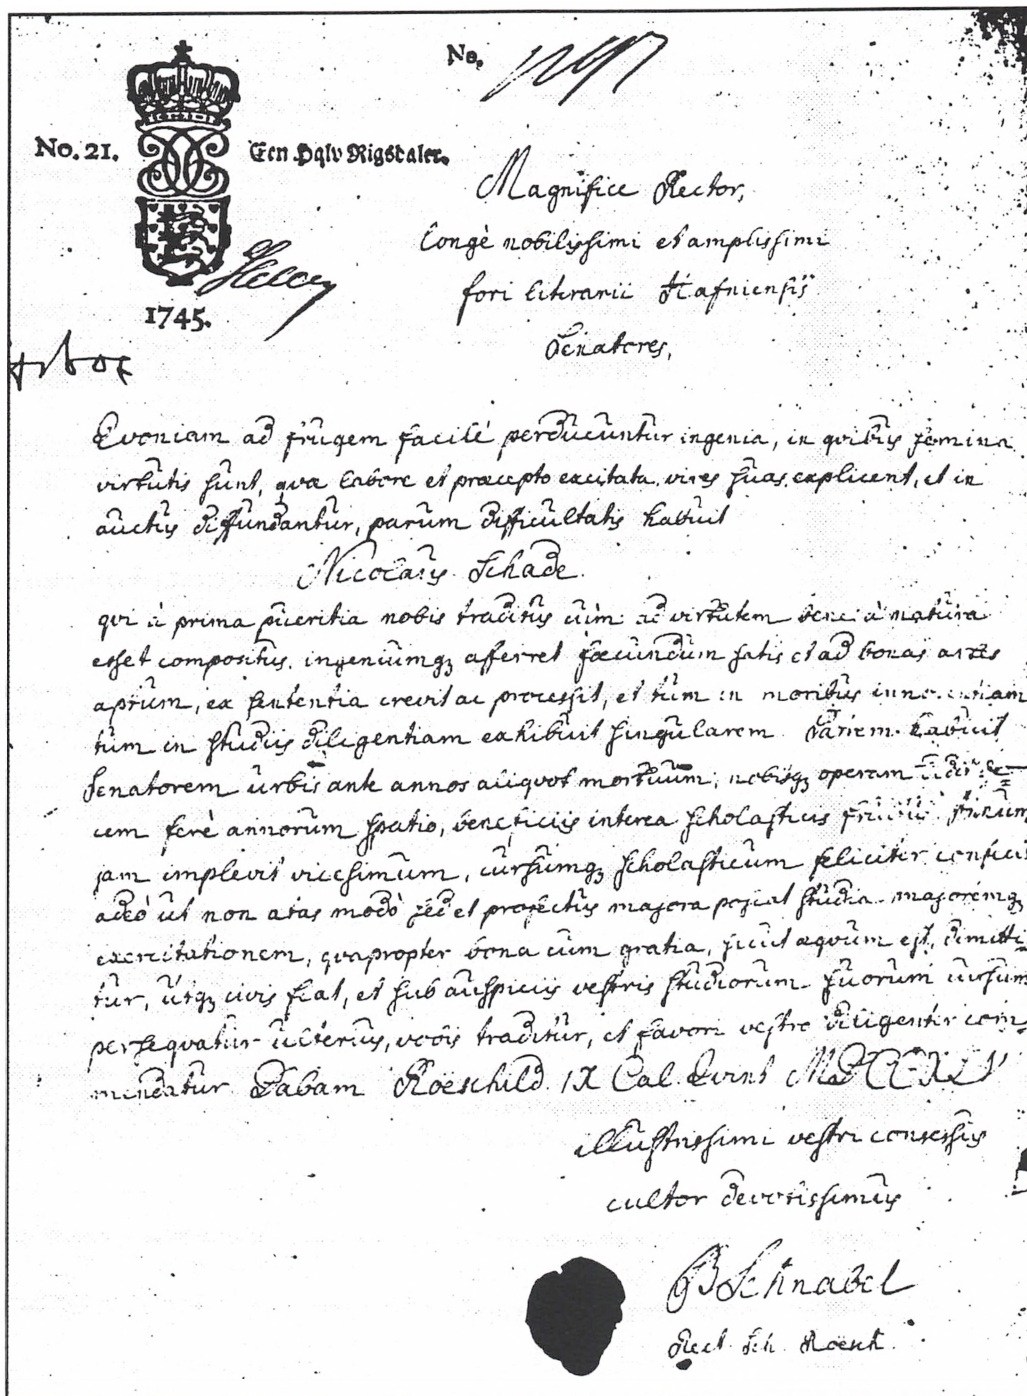 No.
No. 21.
Een Halv Rigsdaler.
1745.
Magnifice Rector,
Longè nobilissimi et amplissimi
fori literarii Hafniensis
Senatores,
Qvoniam ad frugem facilè perducuntur ingenia, in qvibus semina
virtutis sunt, qvæ labore et præcepto excitata vires suas explicent, et in
auctus diffundantur, parum difficultatis habuit
Nicolaus Schade
qvi à prima pueritia nobis traditus cùm ad virtutem bene à natura
esset compositus, ingeniumq; afferret fœcundum satis et ad bonas artes
aptum, ex sententia crevit ac processit, et tum in moribus innocentiam
tum in studiis diligentiam exhibuit singularem. Patrem habuit
Senatorem urbis ante annos aliqvot mortuum, nobisq; operam dedit de-
cem ferè annorum spatio, beneficiis interea scholasticis
jam implevit vicesimum, cursumq; scholasticum feliciter confecit
adeò ut non ætas modò sed et profectus majora poscat studia majoremq;
exercitationem, qvapropter bona cum gratia, sicut æqvum est, dimitti-
tur, utq; civis fiat, et sub auspiciis vestris studiorum suorum cursum
perseqvatur ulterius, vobis traditur, et favori vestro diligenter com-
mendatur Dabam Roeschild IX Cal. Qvint MDCCXLV
illustrissimi vestri consessus
cultor devotissimus
B Schnabel
Rect. Sch. Roesch.